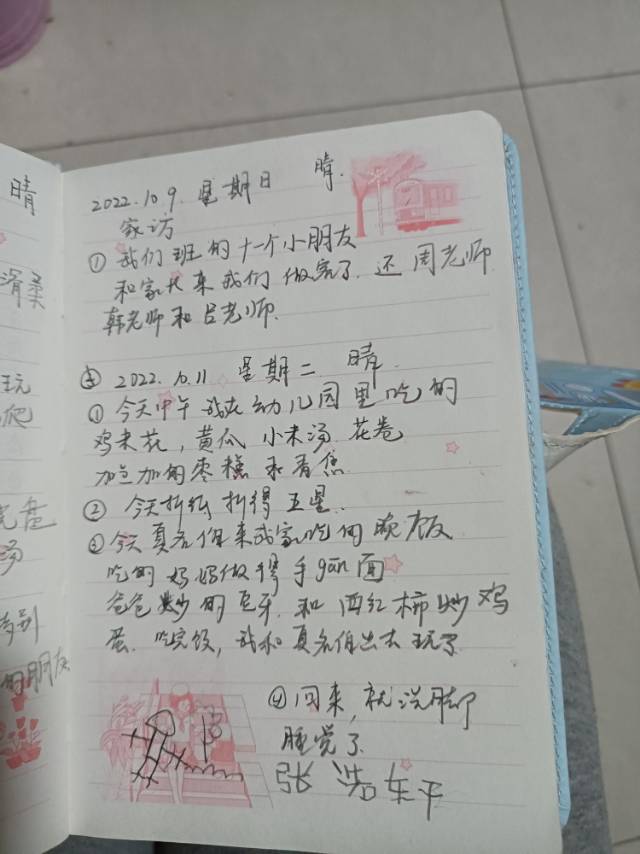 晴
滑柔
玩
爬
汤
的朋友
2022.10.9 星期日 晴.
家访
① 我们班的十一个小朋友
和家长来我们做客了.还周老师
韩老师和吕老师.
2022.10.11 星期二 晴.
① 今天中午我在幼儿园里吃的
鸡米花,黄瓜 小米汤 花卷
加的枣糕和香蕉
② 今天折纸折得五星.
③ 今天真名伯来我家吃的晚饭
吃的妈妈做得手gǎn面
爸爸炒的豆牙.和西红柿炒鸡
蛋.吃完饭,我和真名伯出去玩了
④ 回来,就洗脚
睡觉了.
张浩东平